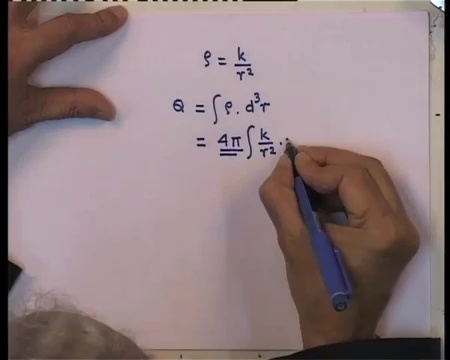 ρ = k/r²
Q = ∫ ρ . d³r
= 4π ∫ k/r² .